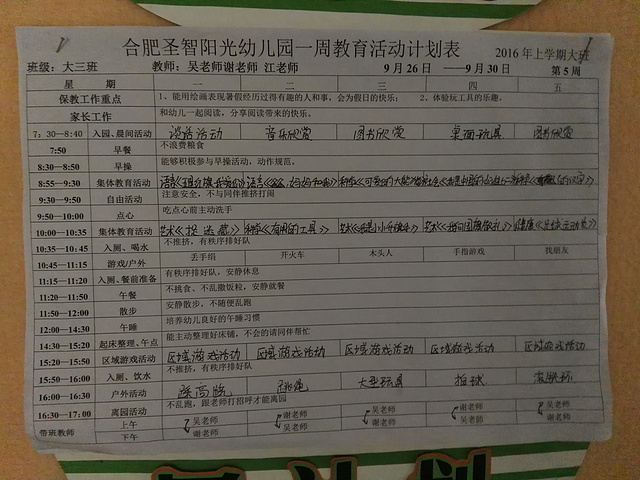 合肥圣智阳光幼儿园一周教育活动计划表
2016年上学期大班
班级：大三班 教师：吴老师谢老师 江老师 9月26日——9月30日 第5周
星期 一 二 三 四 五
保教工作重点 1、能用绘画表现暑假经历过得有趣的人和事，会为假日的快乐； 2、体验玩工具的乐趣。
家长工作 和幼儿一起阅读，分享阅读带来的快乐。
7：30—8:40 入园、晨间活动 谈话活动 音乐欣赏 图书欣赏 桌面玩具 图书欣赏
7:50 早餐 不浪费粮食
8:30—8:50 早操 能够积极参与早操活动，动作规范。
8:55—9:30 集体教育活动
9:30—9:50 自由活动 注意安全，不与同伴推挤打闹
9:50—10:00 点心 吃点心前主动洗手
10:00—10:35 集体教育活动 科学《有用的工具》
10:35—10:45 入厕、喝水 不推挤，有秩序排好队
10:45—11:15 游戏/户外 丢手绢 开火车 木头人 手指游戏 找朋友
11:15—11:20 入厕、餐前准备 有秩序排好队，安静休息
11:20—11:50 午餐 不挑食、不乱撒饭粒，安静就餐
11:50—12:00 散步 安静散步，不随便乱跑
12:00—14:30 午睡 培养幼儿良好的午睡习惯
14:30—15:20 起床整理、午点 能主动整理好床铺，不会的请同伴帮忙
15:20—15:50 区域游戏活动 区域游戏活动 区域游戏活动 区域游戏活动 区域游戏活动 区域游戏活动
15:50—16:00 入厕、饮水 不推挤，有秩序排好队
16:00—16:30 户外活动 踩高跷 跳绳 大型玩具 拍球
16:30—17:00 离园活动 不乱跑，跟老师打招呼才能离园
带班教师 上午 吴老师 谢老师 吴老师 谢老师 吴老师
下午 谢老师 吴老师 谢老师 吴老师 谢老师